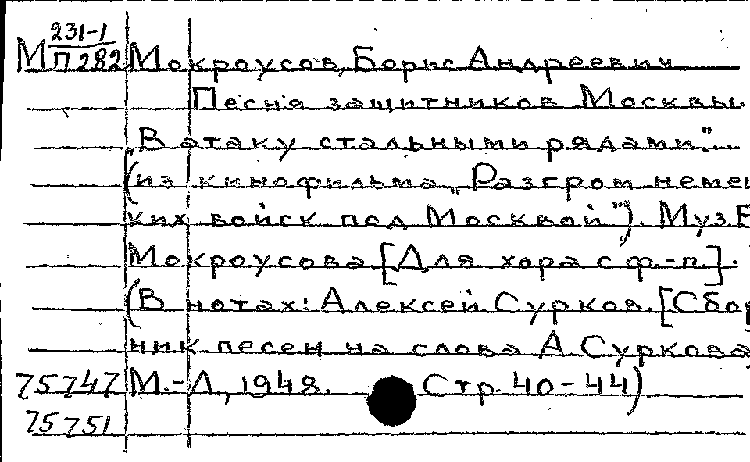 231-1
М П282 Мокроусов, Борис Андреевич
Песня защитников Москвы
"В атаку стальными рядами"...
(из кинофильма "Разгром немец
ких войск под Москвой"). Муз. Б
Мокроусова [Для хора с ф.-п.].
(В нотах: Алексей Сурков. [Сбор
ник песен на слова А Суркова,
75747 М.-Л, 1948. Стр. 40-44)
75751